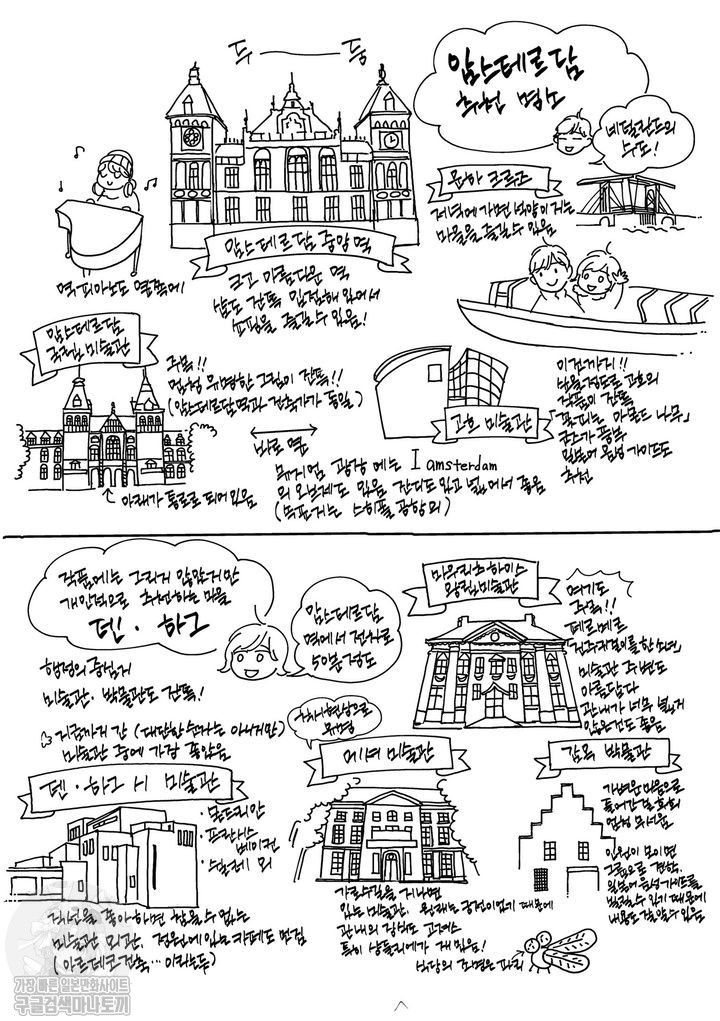 두 — 둥
암스테르담
추천 명소
네덜란드의
수도!
운하 크루즈
저녁에 가면 석양이 지는
마을을 즐길 수 있음
암스테르담 중앙역
크고 아름다운 역
샵도 잔뜩 밀집해 있어서
쇼핑을 즐길 수 있음!
역 피아노도 옆쪽에
암스테르담
국립 미술관
주목!!
엄청 유명한 그림이 잔뜩!!
(암스테르담역과 건축가가 동일)
아래가 통로로 되어있음
바로 옆
고흐 미술관
이건까지!!
고흐의
작품이 잔뜩
「꽃피는 아몬드 나무」
굿즈가 풍부
일본어 음성 가이드도
추천
뮤지엄 광장에는 I amsterdam
의 오브제도 있음 잔디도 있고 넓어서 좋음
(스히폴 공항의)
작품에는 그리지 않았지만
개인적으로 추천하는 마을
덴 · 하그
암스테르담
역에서 전차로
50분 정도
행정의 중심지
미술관 · 박물관도 잔뜩!
지금까지 간 (대단한 숫자는 아니지만)
미술관 중에 가장 좋았음
덴 · 하그 시 미술관
· 몬드리안
· 프란시스
베이컨
· 모네 외
건축을 좋아하면 참을 수 없는
미술관 외관. 정원에 있는 카페도 멋짐
(아르데코 건축… 이라는 듯)
마우리츠하이스
왕립 미술관
여기도
주목!!
페르메르
「진주 귀걸이를 한 소녀」
미술관 주변도
아름답다
관내가 너무 넓지
않은 것도 좋음
유명
에셔 미술관
가로수길을 지나면
있는 미술관. 원래는 궁전이었기 때문에
관내의 장식도 고저스
특히 샹들리에가 재밌음!
감옥 박물관
가벼운 마음으로
들어간 걸 후회
엄청 무서움
인원이 모이면
그룹으로 견학.
일본어 음성 가이드를
빌릴 수 있기 때문에
내용도 잘 알 수 있음
가장 빠른 일본만화사이트
구글검색마나토끼